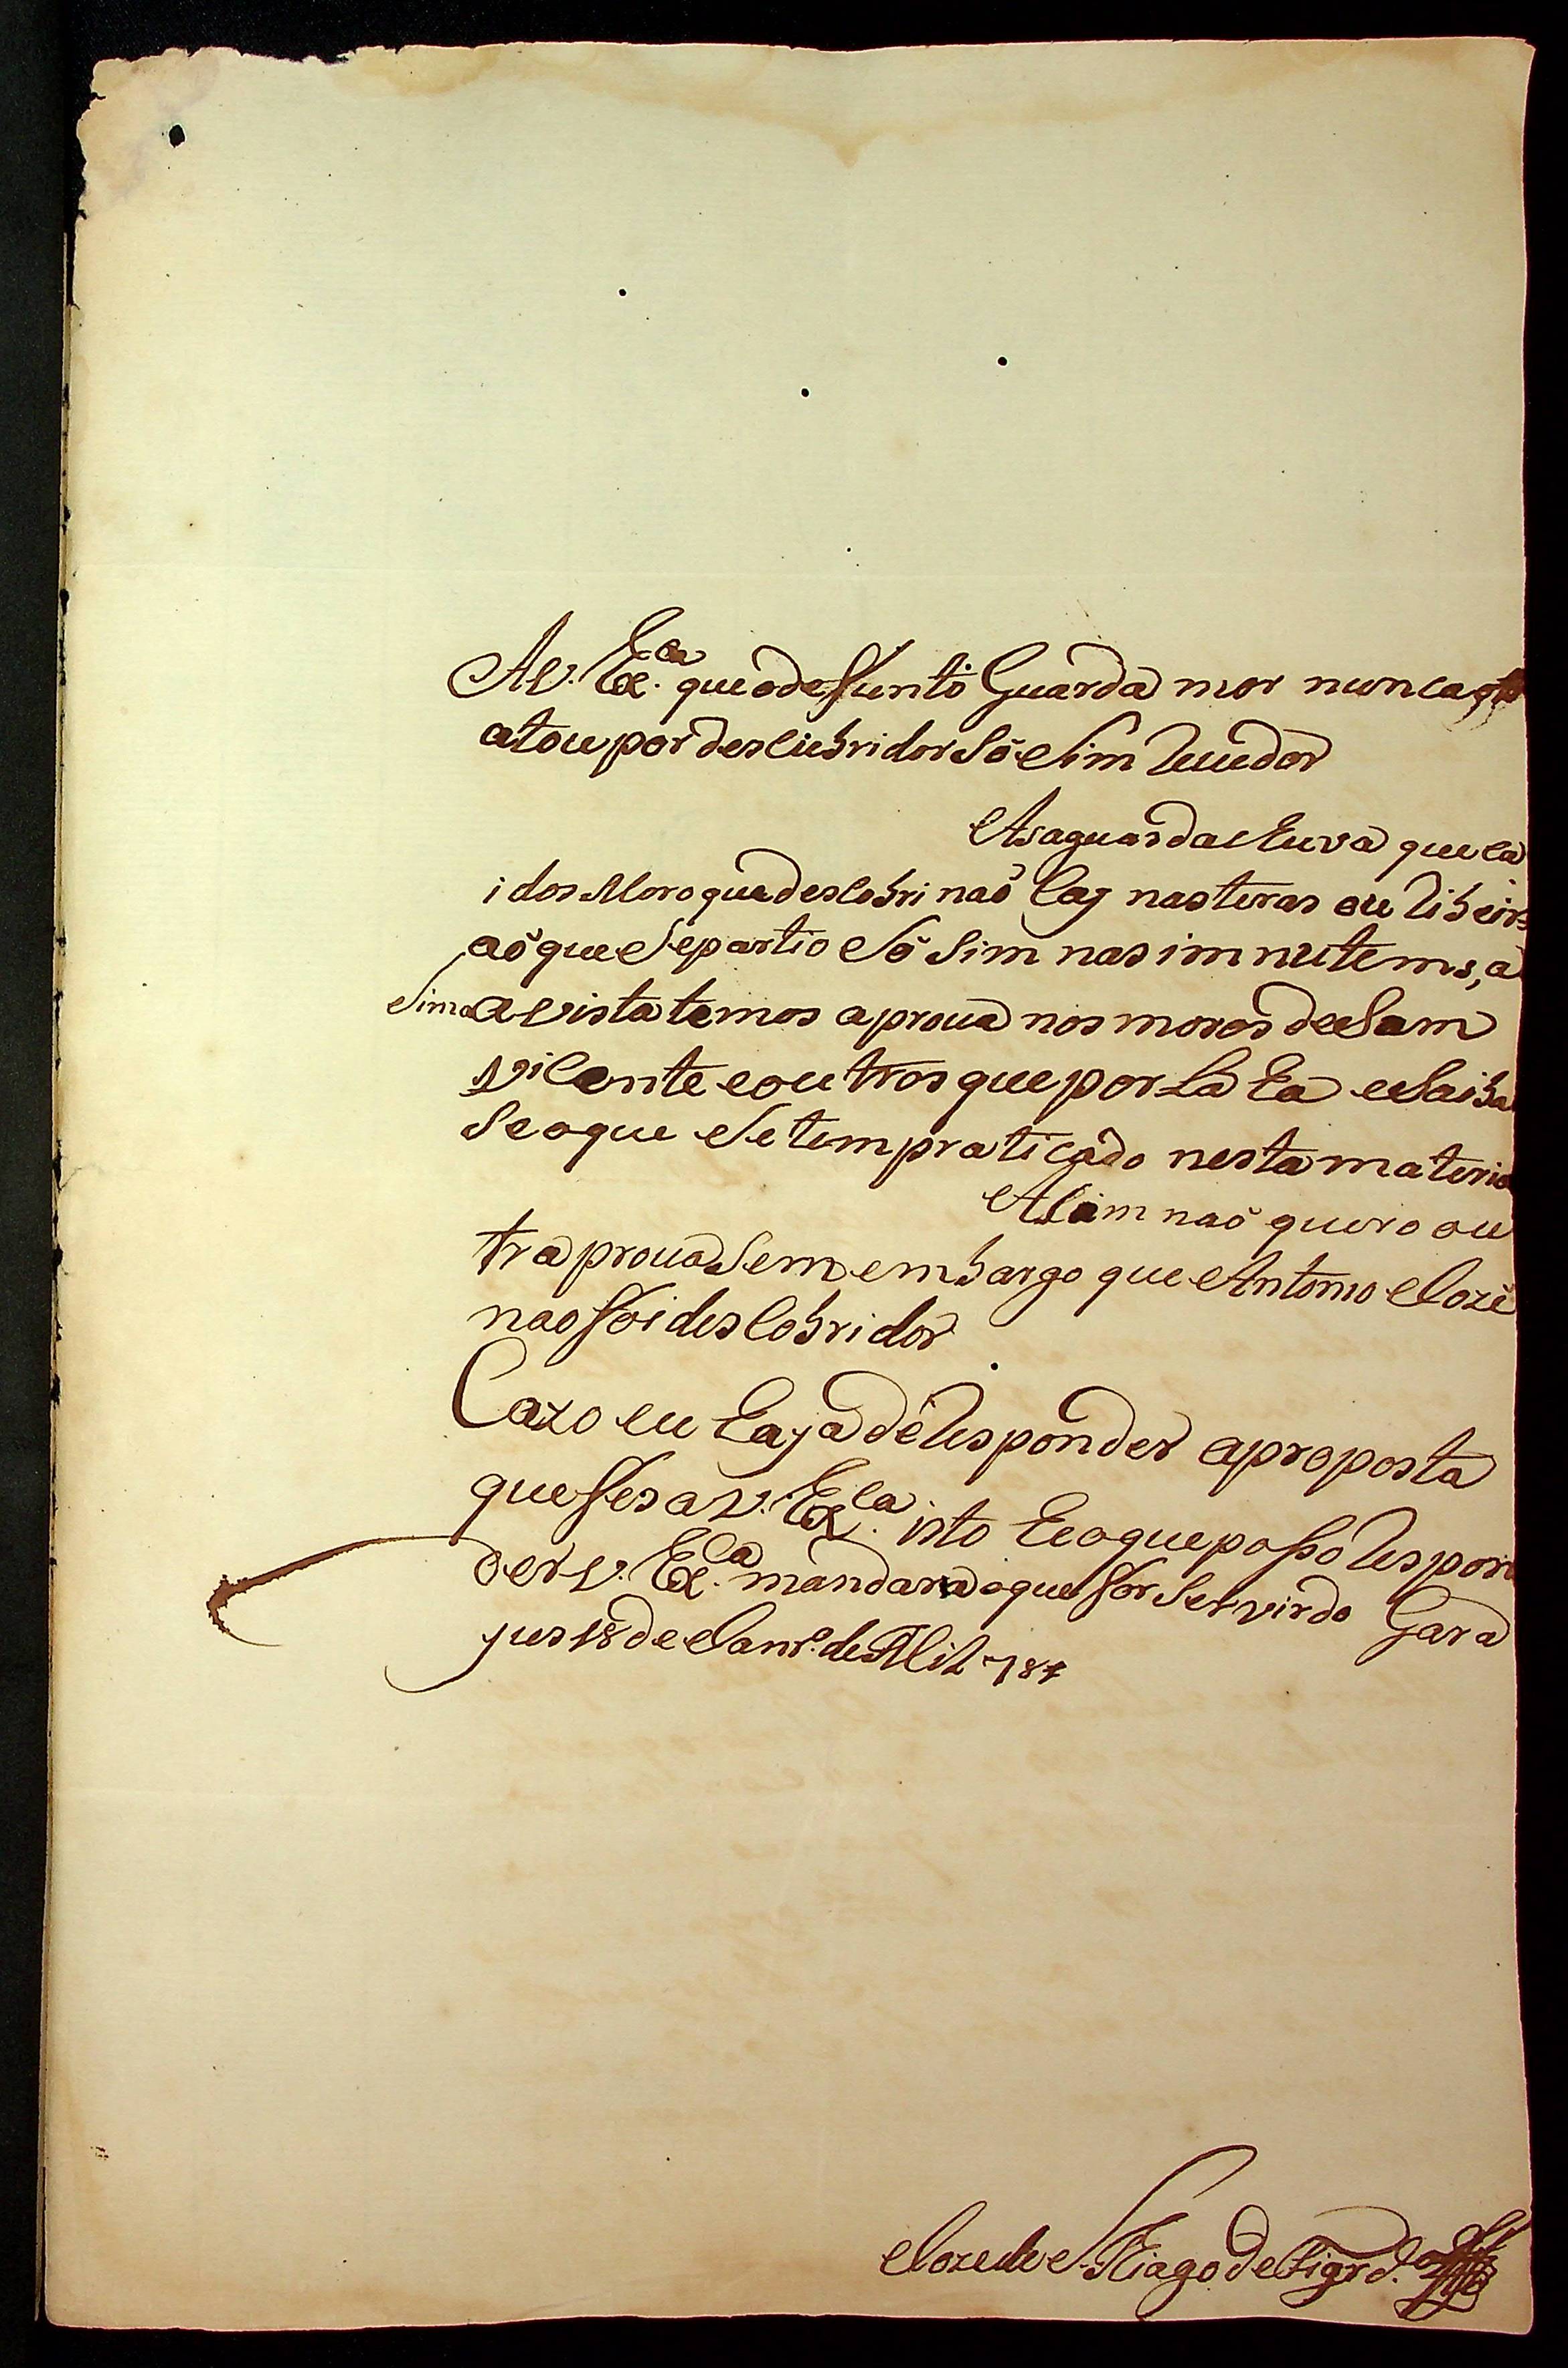 AV. Ex.ca que o defunto Guarda mor nunca
atou por descubridor Só e Sim vendor
As aguas da chuva que ca
i dos Moro que descobri naõ Caj nas teras ou Ribeirã
aõ que Se partio e Só Sim nas im nutems, a
Sima avista temos a proua nos moros de Sam
vicente e outros que por La ha e Saiba
Se o que Se tem praticado nesta materia
Asim naõ quero ou
tra proua Sem embargo que Antonio Joze
nao foi descobridor
Cazo eu haja de Responder a proposta
que fes a V. Ex.ca isto he o que posso Respon
der V. Ex.ca mandara o que for Servirdo Gara
jus 18 de Janr.o de Mil 787
Joze de S. Tiago de Figrd.o